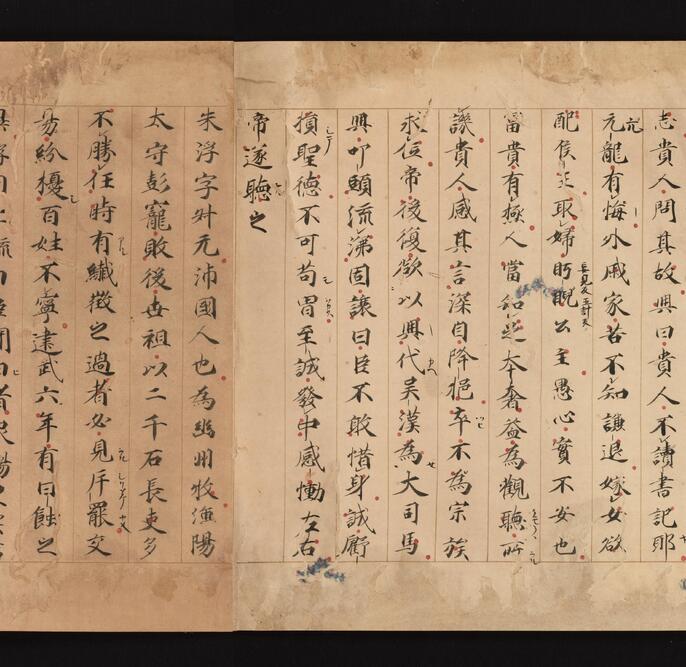 志貴人問其故興曰貴人不讀書記耶
元龍有悔外戚家苦不知謙退嫁女欲
配侯王取婦盻睨公主愚心實不安也
富貴有極人當知足夸奢益為觀聽所
譏貴人感其言深自降挹卒不為宗族
求位帝後復欲以興代吳漢為大司馬
興叩頭流涕固讓曰臣不敢惜身誠虧
損聖德不可苟冒至誠發中感慟左右
帝遂聽之
朱浮字叔元沛國人也為幽州牧漁陽
太守彭寵敗後世祖以二千石長吏多
不勝任時有纖微之過者必見斥罷交
易紛擾百姓不寧建武六年有日蝕之